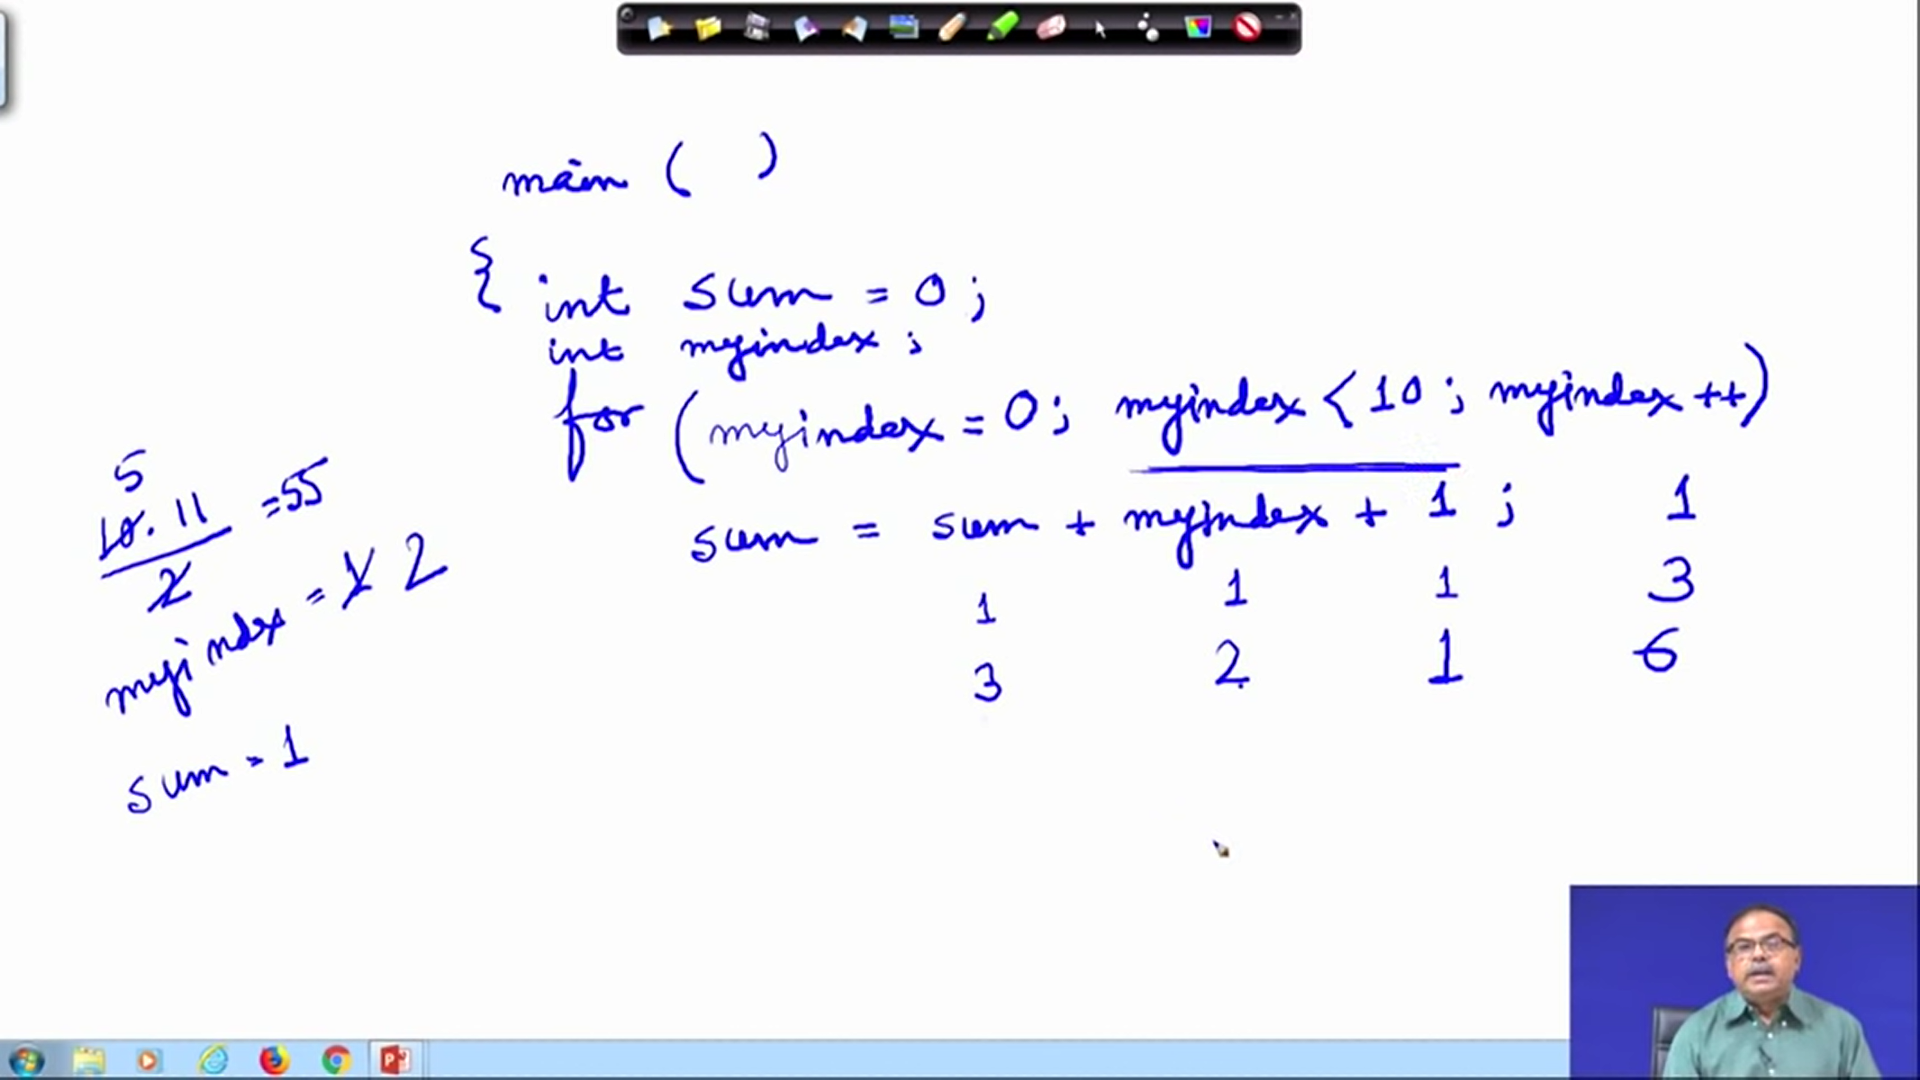 main ( )
{ int sum = 0 ;
int myindex ;
for ( myindex = 0 ; myindex < 10 ; myindex ++ )
sum = sum + myindex + 1 ; 1
1 1 1 3
3 2 1 6
5
10 . 11 = 55
2
myindex = 1 2
sum = 1